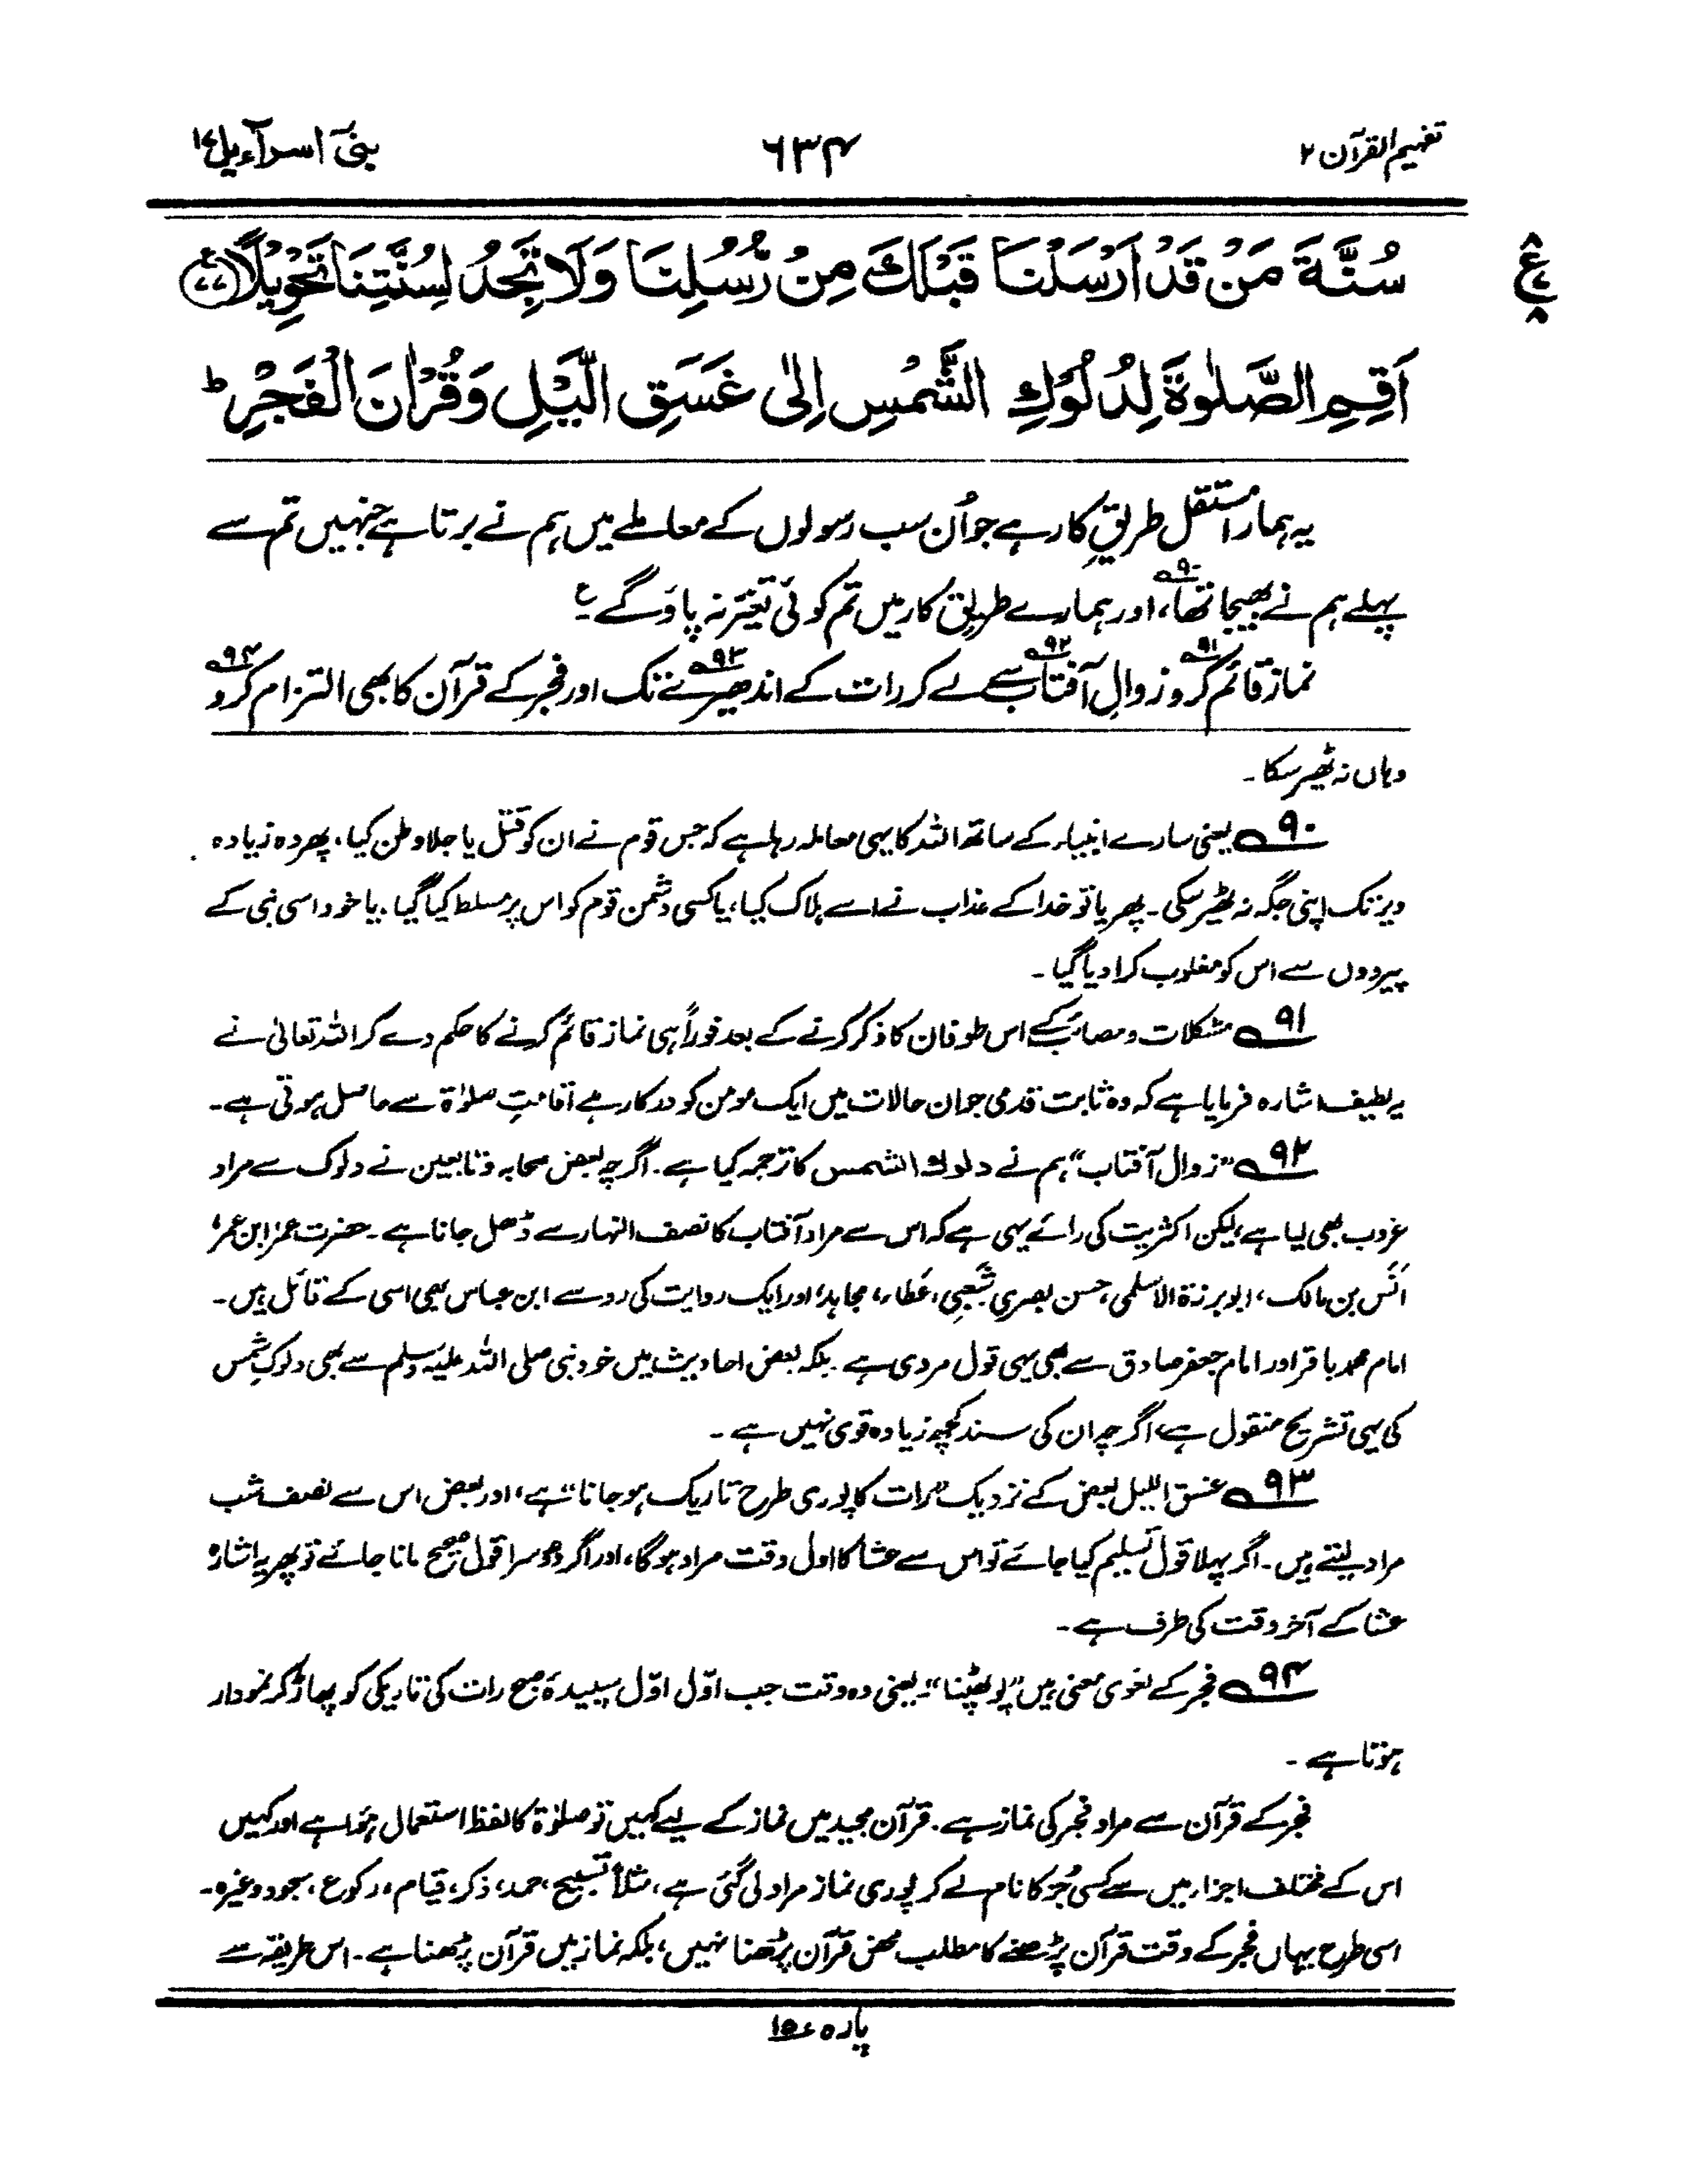 تفہیم القرآن ۲
۶۳۴
بنیٓ اسرآءیل ۱۷
سُنَّةَ مَنْ قَدْ اَرْسَلْنَا قَبْلَكَ مِنْ رُّسُلِنَا وَلَا تَجِدُ لِسُنَّتِنَا تَحْوِيْلًا ﴿۷۷﴾ ع
اَقِمِ الصَّلٰوةَ لِدُلُوْكِ الشَّمْسِ اِلٰى غَسَقِ الَّيْلِ وَقُرْاٰنَ الْفَجْرِ ؕ
یہ ہمارا مستقل طریقِ کار ہے جو اُن سب رسولوں کے معاملے میں ہم نے برتا ہے جنہیں تم سے
پہلے ہم نے بھیجا تھا،۹۰ اور ہمارے طریقِ کار میں تم کوئی تغیّر نہ پاؤ گے ؏
نماز قائم کرو۹۱ زوالِ آفتاب سے۹۲ لے کر رات کے اندھیرے۹۳ تک اور فجر کے قرآن کا بھی التزام کرو۹۴
وہاں نہ ٹھیر سکا۔
۹۰ یعنی سارے انبیاء کے ساتھ اللہ کا یہی معاملہ رہا ہے کہ جس قوم نے ان کو قتل یا جلا وطن کیا، پھر وہ زیادہ
دیر تک اپنی جگہ نہ ٹھیر سکی۔ پھر یا تو خدا کے عذاب نے اسے ہلاک کیا، یا کسی دشمن قوم کو اس پر مسلط کیا گیا، یا خود اسی نبی کے
پیرووں سے اس کو مغلوب کرا دیا گیا۔
۹۱ مشکلات و مصائب کے اس طوفان کا ذکر کرنے کے بعد فوراً ہی نماز قائم کرنے کا حکم دے کر اللہ تعالیٰ نے
یہ لطیف اشارہ فرمایا ہے کہ وہ ثابت قدمی جو ان حالات میں ایک مومن کو درکار ہے اقامتِ صلوٰۃ سے حاصل ہوتی ہے۔
۹۲ ”زوال آفتاب“ ہم نے دلوك الشمس کا ترجمہ کیا ہے۔ اگرچہ بعض صحابہ و تابعین نے دلوک سے مراد
غروب بھی لیا ہے، لیکن اکثریت کی رائے یہی ہے کہ اس سے مراد آفتاب کا نصف النہار سے ڈھل جانا ہے۔ حضرت عمر، ابن عمر،
اَنَس بن مالک، ابو برزۃ الاسلمی، حسن بصری، شَعبِی، عَطاء، مجاہد، اور ایک روایت کی رو سے ابن عباس بھی اسی کے قائل ہیں۔
امام محمد باقر اور امام جعفر صادق سے بھی یہی قول مروی ہے۔ بلکہ بعض احادیث میں خود نبی صلی اللہ علیہ وسلم سے بھی دلوکِ شمس
کی یہی تشریح منقول ہے، اگرچہ ان کی سند کچھ زیادہ قوی نہیں ہے۔
۹۳ غسق اللیل بعض کے نزدیک ”رات کا پوری طرح تاریک ہو جانا“ ہے، اور بعض اس سے نصف شب
مراد لیتے ہیں۔ اگر پہلا قول تسلیم کیا جائے تو اس سے عشا کا اول وقت مراد ہوگا، اور اگر دوسرا قول صحیح مانا جائے تو پھر یہ اشارہ
عشا کے آخر وقت کی طرف ہے۔
۹۴ فجر کے لغوی معنی ہیں ”پو پھٹنا“، یعنی وہ وقت جب اوّل اوّل سپیدۂ صبح رات کی تاریکی کو پھاڑ کر نمودار
ہوتا ہے۔
فجر کے قرآن سے مراد فجر کی نماز ہے۔ قرآن مجید میں نماز کے لیے کہیں تو صلوٰۃ کا لفظ استعمال ہُوا ہے اور کہیں
اس کے مختلف اجزاء میں سے کسی جُز کا نام لے کر پوری نماز مراد لی گئی ہے، مثلاً تسبیح، حمد، ذکر، قیام، رکوع، سجود وغیرہ۔
اسی طرح یہاں فجر کے وقت قرآن پڑھنے کا مطلب محض قرآن پڑھنا نہیں، بلکہ نماز میں قرآن پڑھنا ہے۔ اس طریقہ سے
پارہ ۱۵